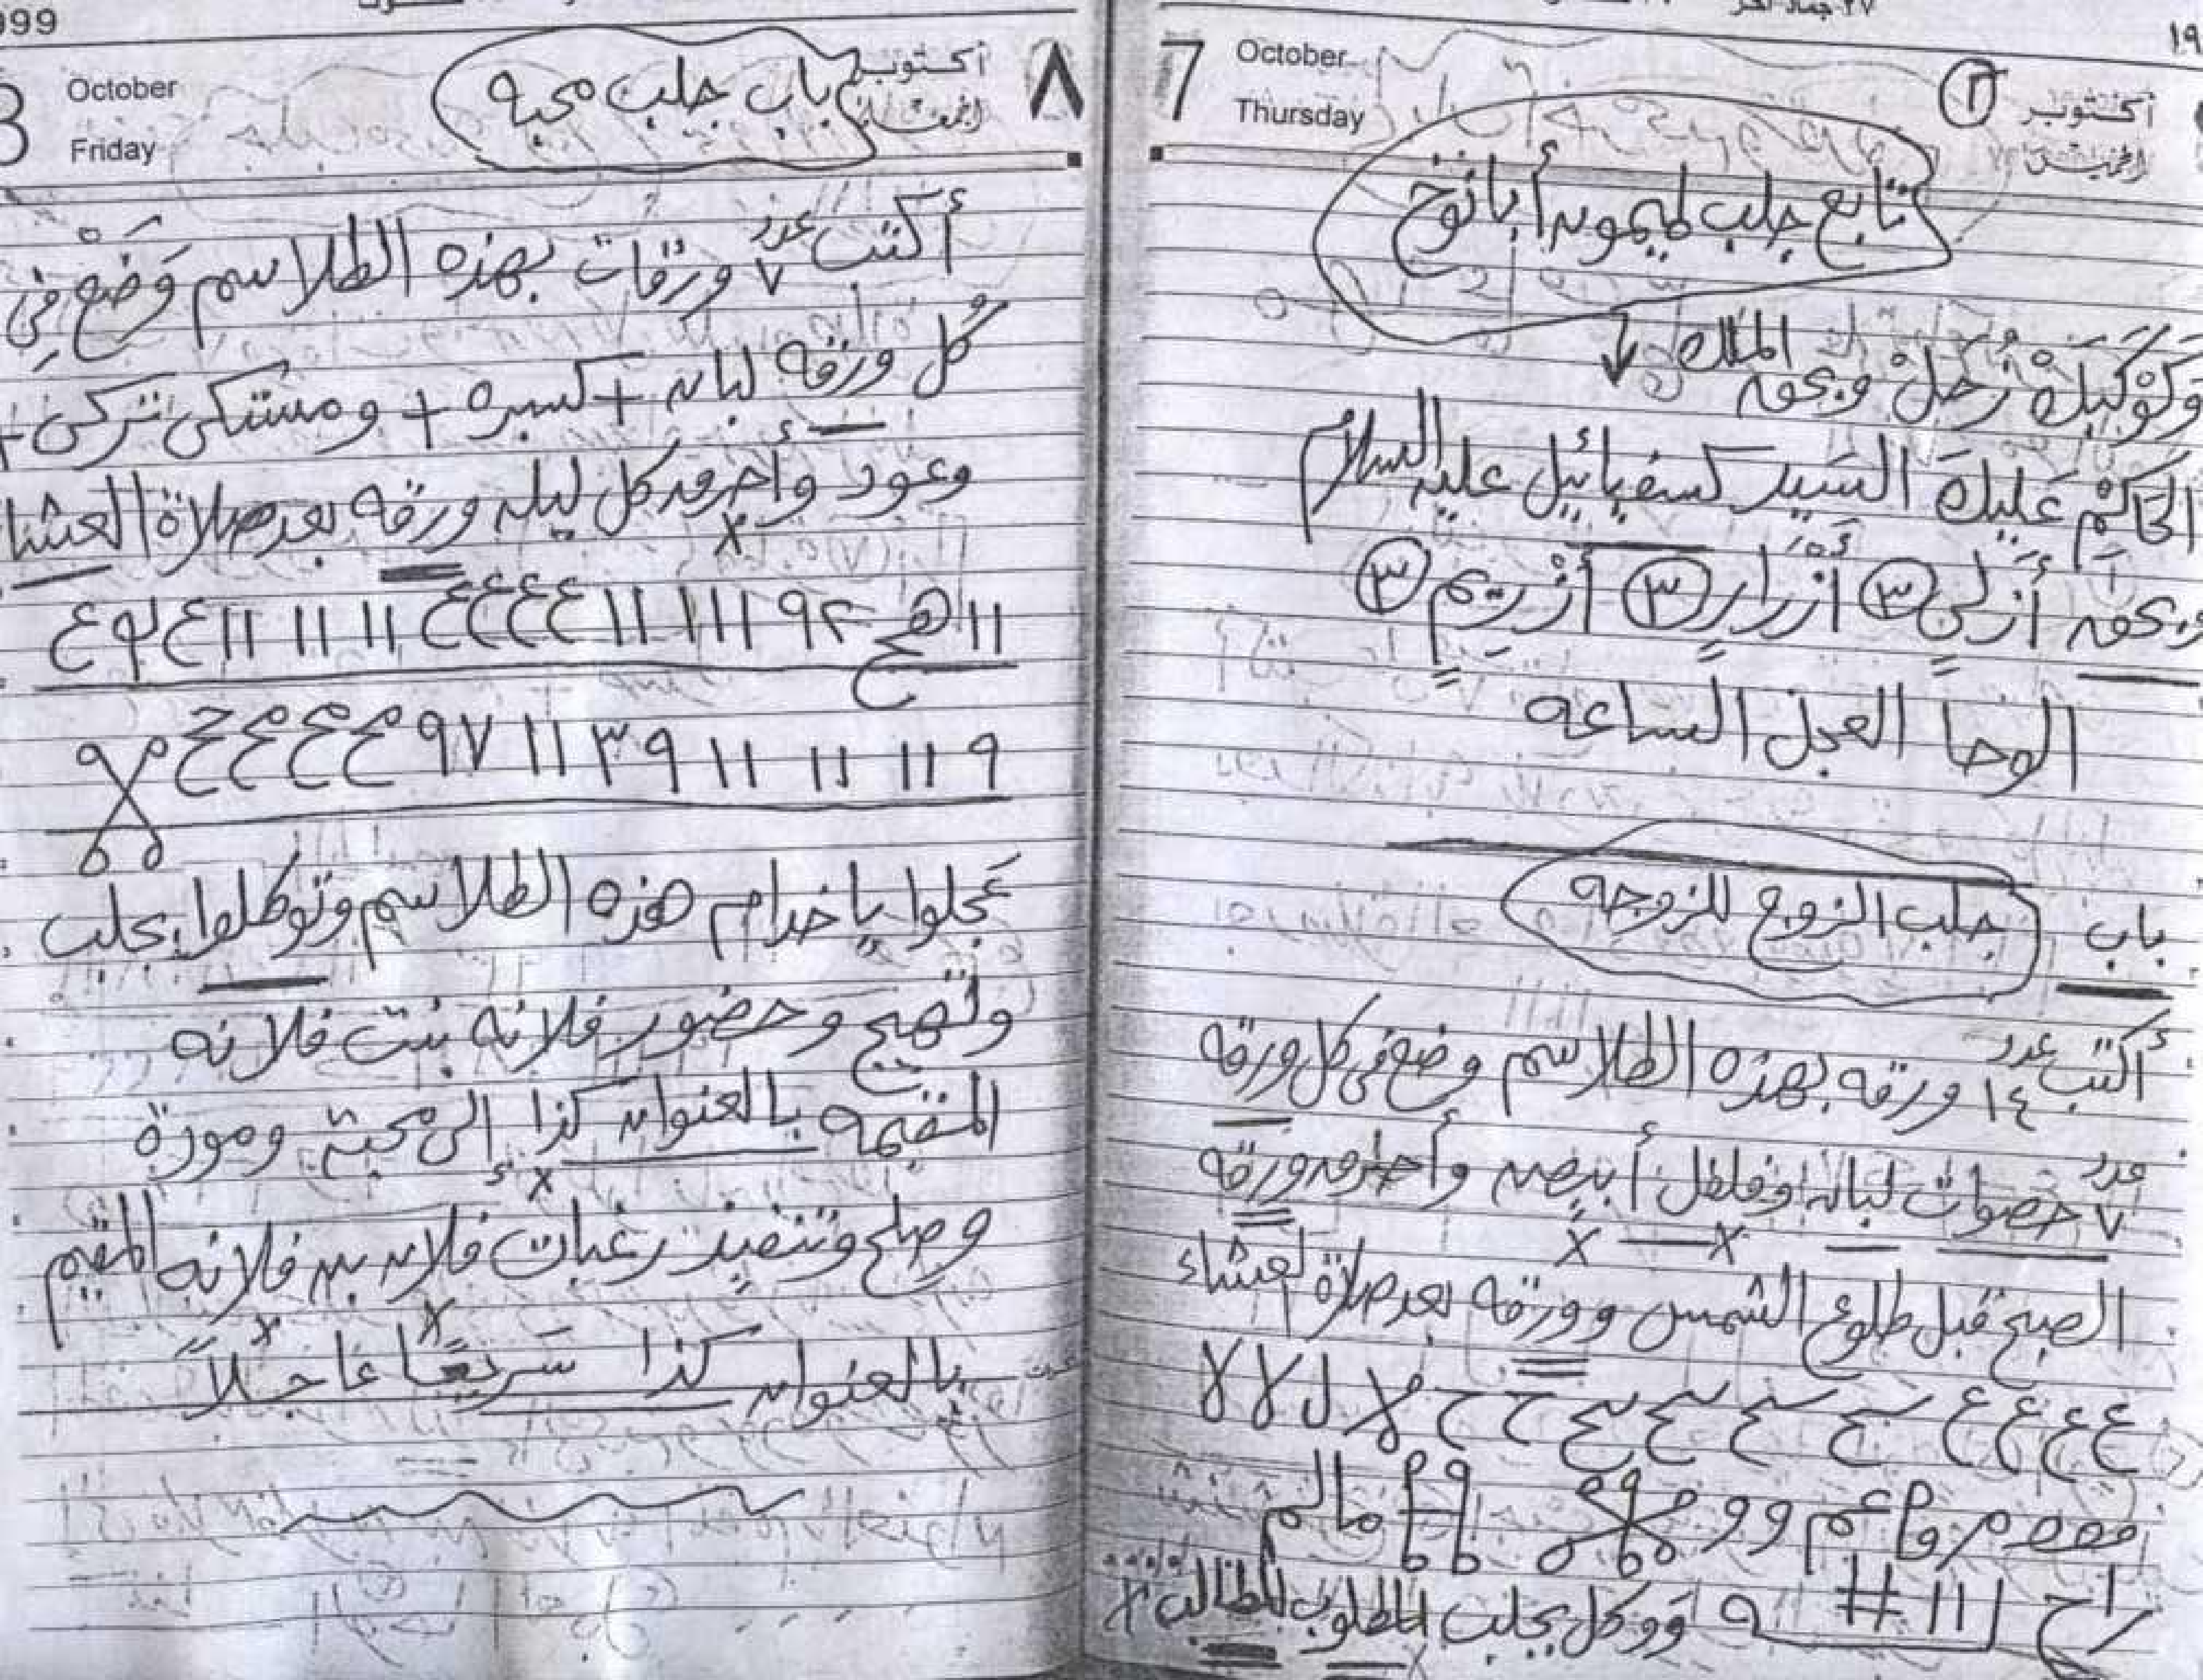 ٢٧ جماد آخر
October
7
Thursday
أكتوبر
الخميس
٢
تابع جلب لميمون أبانوخ
وَكَوْكَبِكَ زُحَلْ وبحق الملك
الحَاكِمْ عَليكَ السَيد كسفيائيل عليه السلام
وبحق أزلىٍ ٣ أزرارٍ ٣ أزريمٍ ٣
الوحا العجل الساعه
باب جلب الزوج للزوجه
أكتب عدد ١٤ ورقه بهذه الطلاسم وضع فى كل ورقه
عدد ٧ حصوات لبان وفلفل أبيض وأحرق ورقه
الصبح قبل طلوع الشمس وورقه بعد صلاة العشاء
ع ع ع ع
ووكل بجلب المطلوب للطالب
999
October
Friday
٨
أكتوبر
الجمعة
باب جلب محبه
أكتب عدد ٧ ورقات بهذه الطلاسم وَضع فِى
كُل ورقه لبان + كسبره + ومستكى تركى +
وعود وأحرق كل ليله ورقه بعد صلاة العشا
١١ هج ٩٤ ١١١ ١١ ع ع ع ع ١١ ١١ ١١ ع
٩ ١١ ١١ ١١ ٩ ٣ ١١ ٩٧
عَجلوا يا خدام هذه الطلاسم وتوكلوا بجلب
وتهيج وحضور فلانه بنت فلانه
المقيمه بالعنوان كذا إلى محبة ومودة
وصلح وتنفيذ رغبات فلان بن فلانه المقيم
بالعنوان كذا سَريعًا عاجلاً